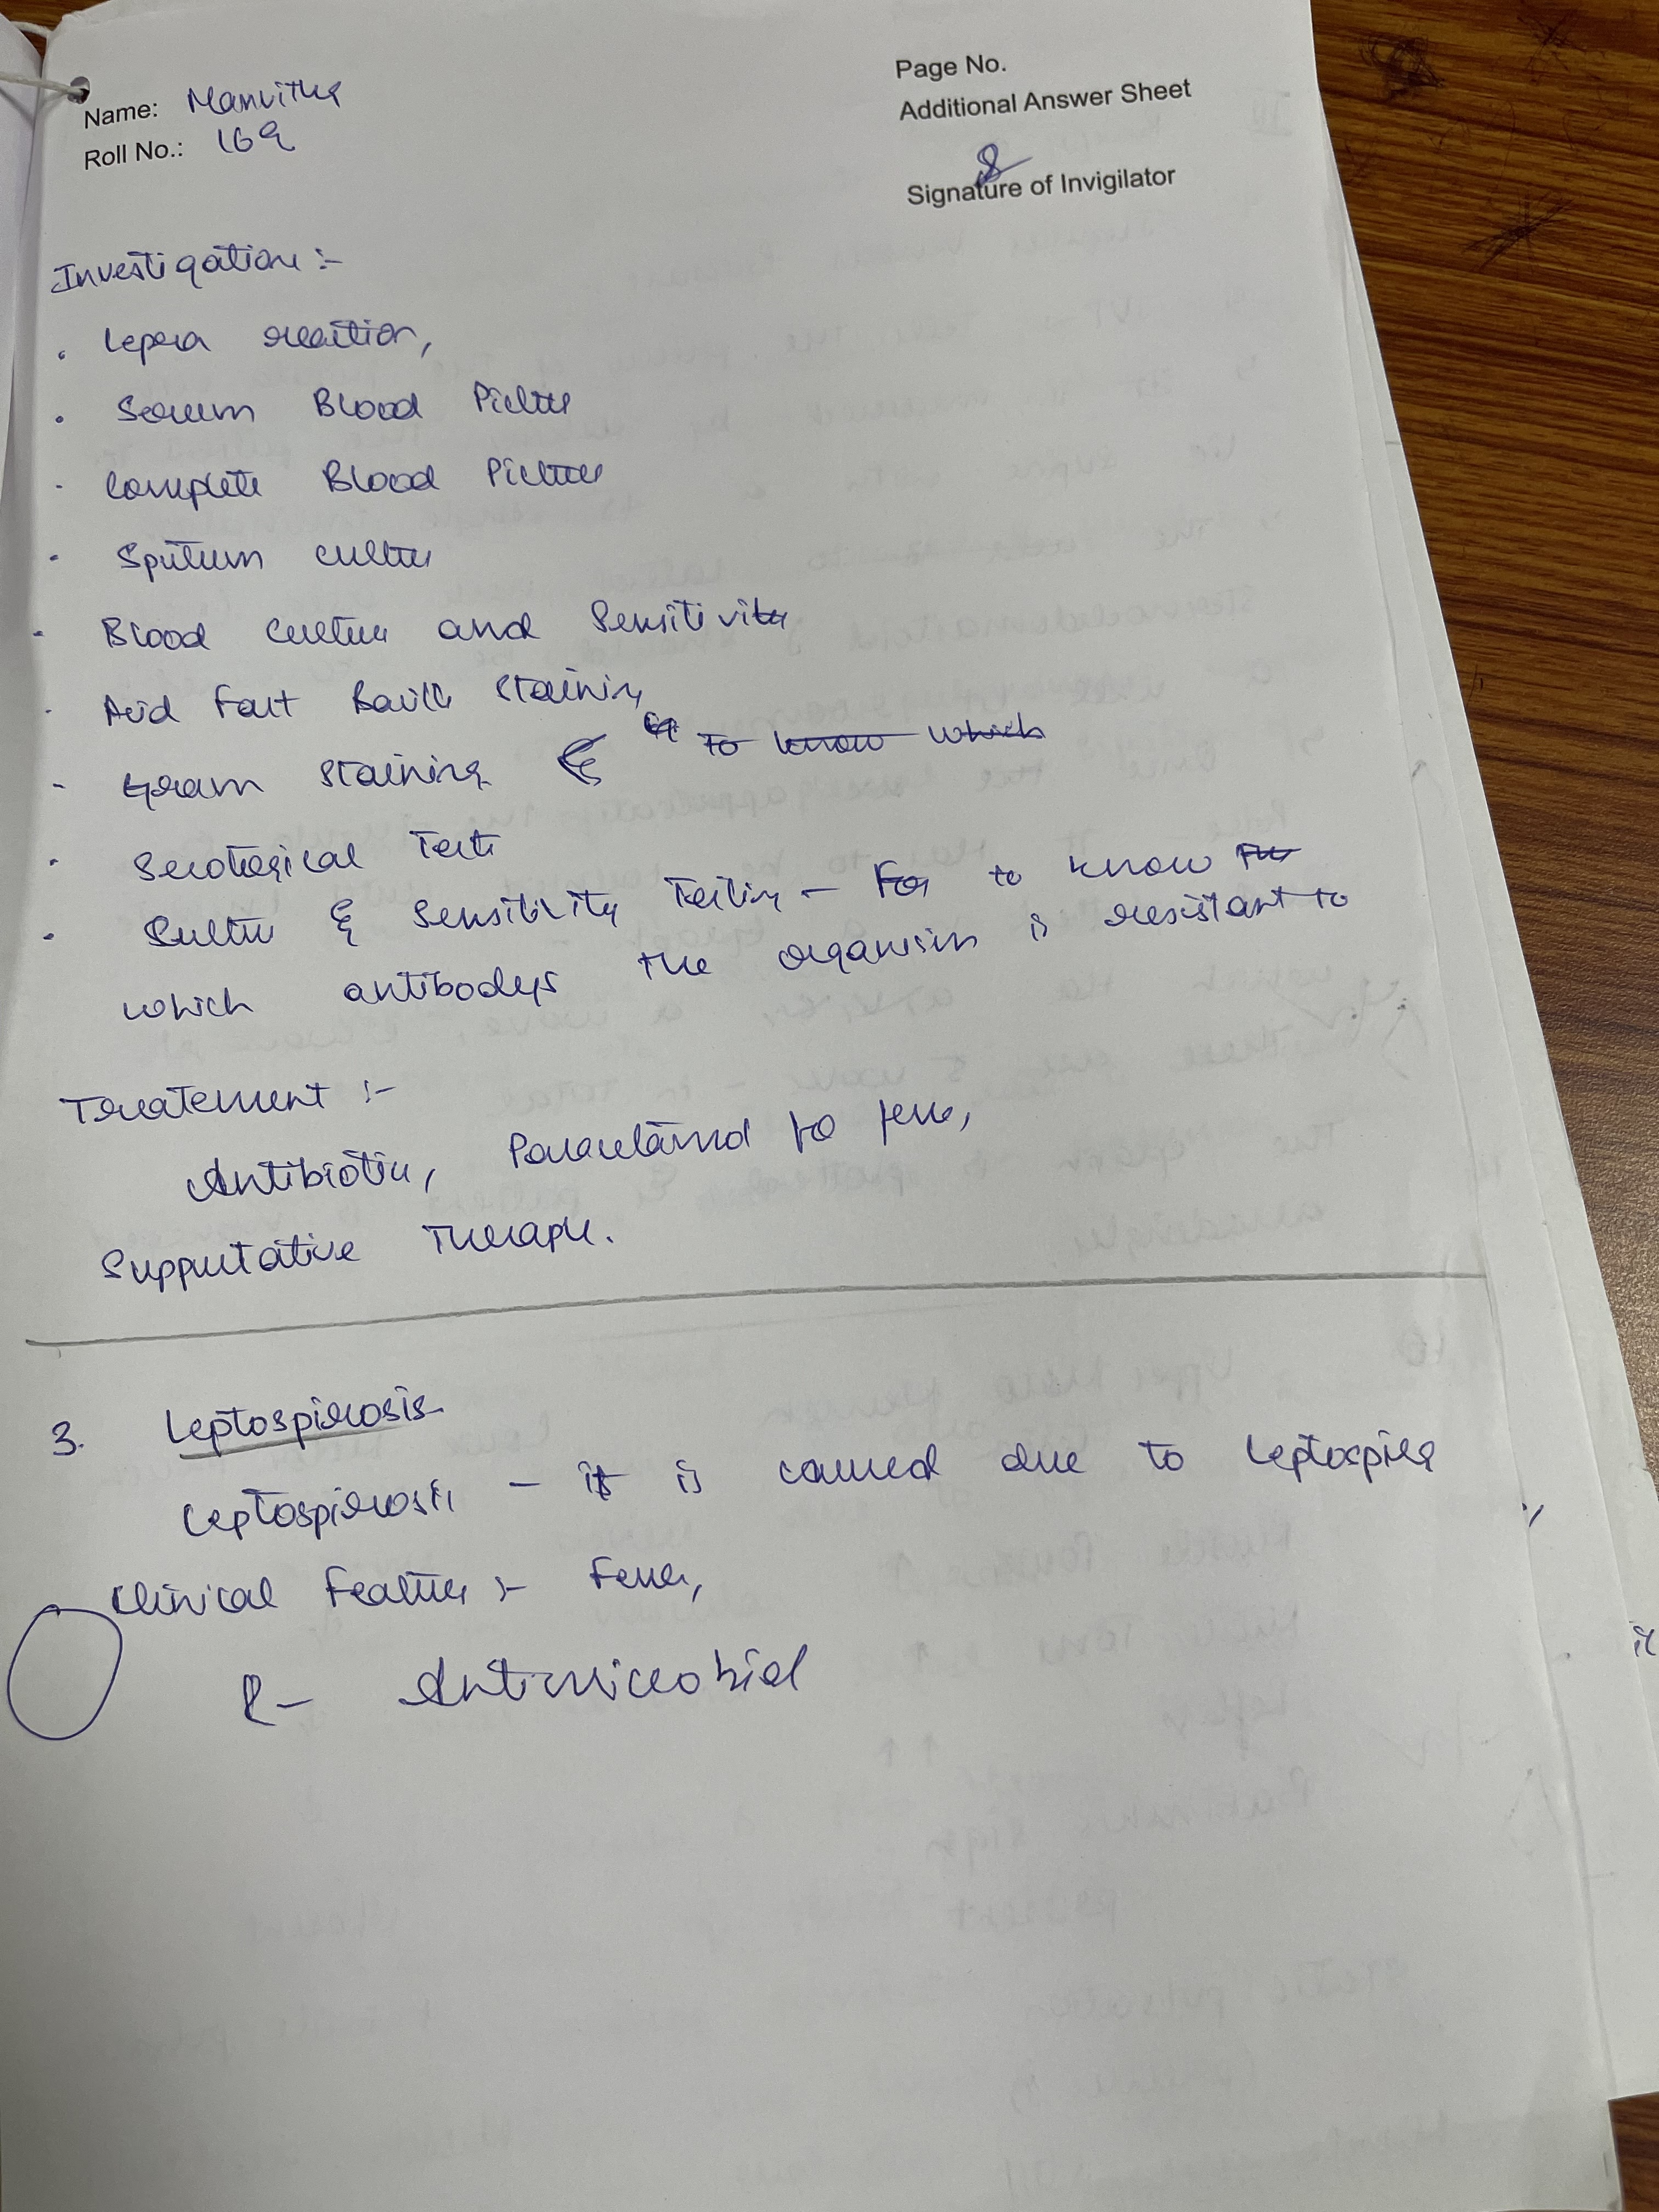 Page No.
Name: Manvitha
Additional Answer Sheet
Roll No.: 169
Signature of Invigilator
Investigation :-
. Lepra reaction,
. Serum Blood Pictue
. Complete Blood Pictue
. Sputum cultue
. Blood cultue and Sensitivity
. Acid Fast Bacilli Staining
- Gram staining & to know which
. Serological Tests
. Cultue & Sensitivity Testing - For to know the
which antibodys the organism is resistant to
Treatement :-
Antibiotic, Paracetamol to feve,
Suppurtative Therapy.
3. Leptospirosis
Leptospirosis - it is caused due to Leptospira
Clinical Featues :- Fever,
R- Antimicrobial